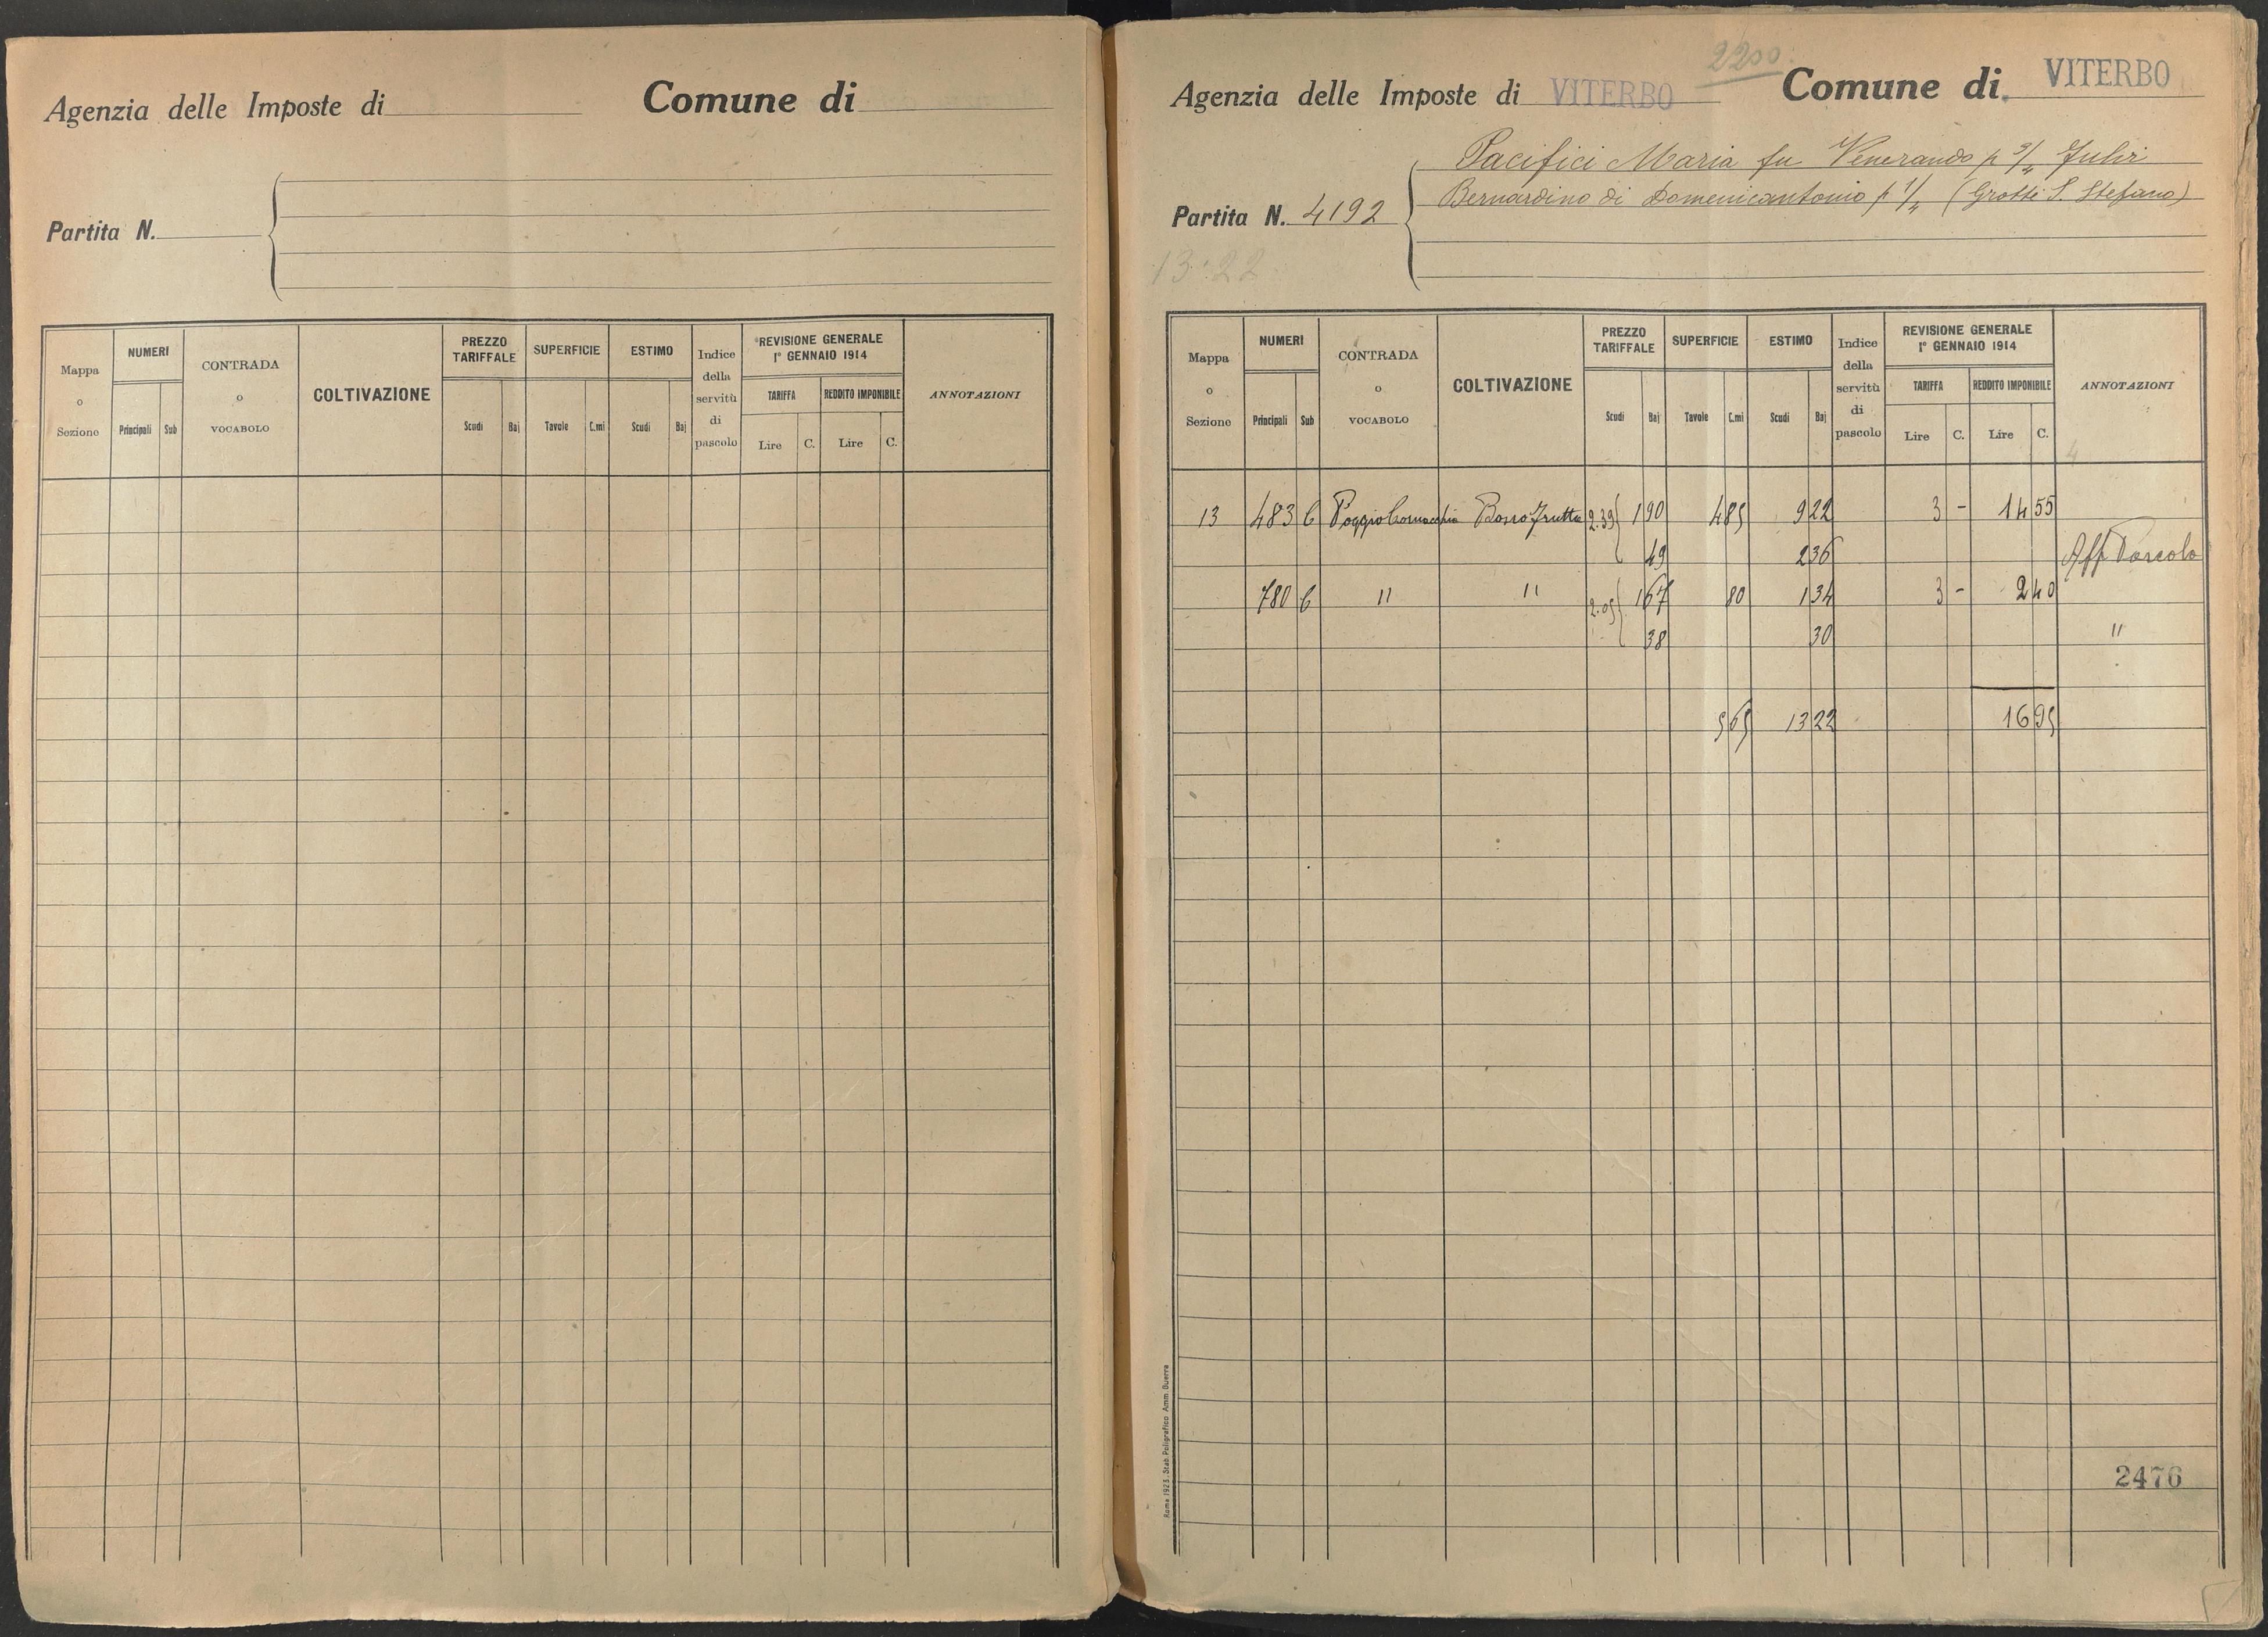 Agenzia delle Imposte di Comune di
Partita N.
Mappa o Sezione NUMERI Principali Sub CONTRADA o VOCABOLO COLTIVAZIONE PREZZO TARIFFALE Scudi Baj SUPERFICIE Tavole C.mi ESTIMO Scudi Baj Indice della servitù di pascolo REVISIONE GENERALE 1° GENNAIO 1914 TARIFFA Lire C. REDDITO IMPONIBILE Lire C. ANNOTAZIONI
2200
Agenzia delle Imposte di VITERBO Comune di VITERBO
Pacifici Maria fu Venerando p 3/4
Bernardino di Domenicantonio p 1/4 (Grotte S. Stefano)
Partita N. 4192
13:22
Mappa o Sezione NUMERI Principali Sub CONTRADA o VOCABOLO COLTIVAZIONE PREZZO TARIFFALE Scudi Baj SUPERFICIE Tavole C.mi ESTIMO Scudi Baj Indice della servitù di pascolo REVISIONE GENERALE 1° GENNAIO 1914 TARIFFA Lire C. REDDITO IMPONIBILE Lire C. ANNOTAZIONI
4
13 483 6 Poggio Cornacchia 2.39 1 90 4 85 9 22 3 - 14 55
49 2 36 Aff Pascolo
780 6 " " 2.05 1 67 80 1 34 3 - 2 40
38 30 "
5 65 13 22 16 95
Roma 1923 - Stab. Poligrafico Amm. Guerra
2476